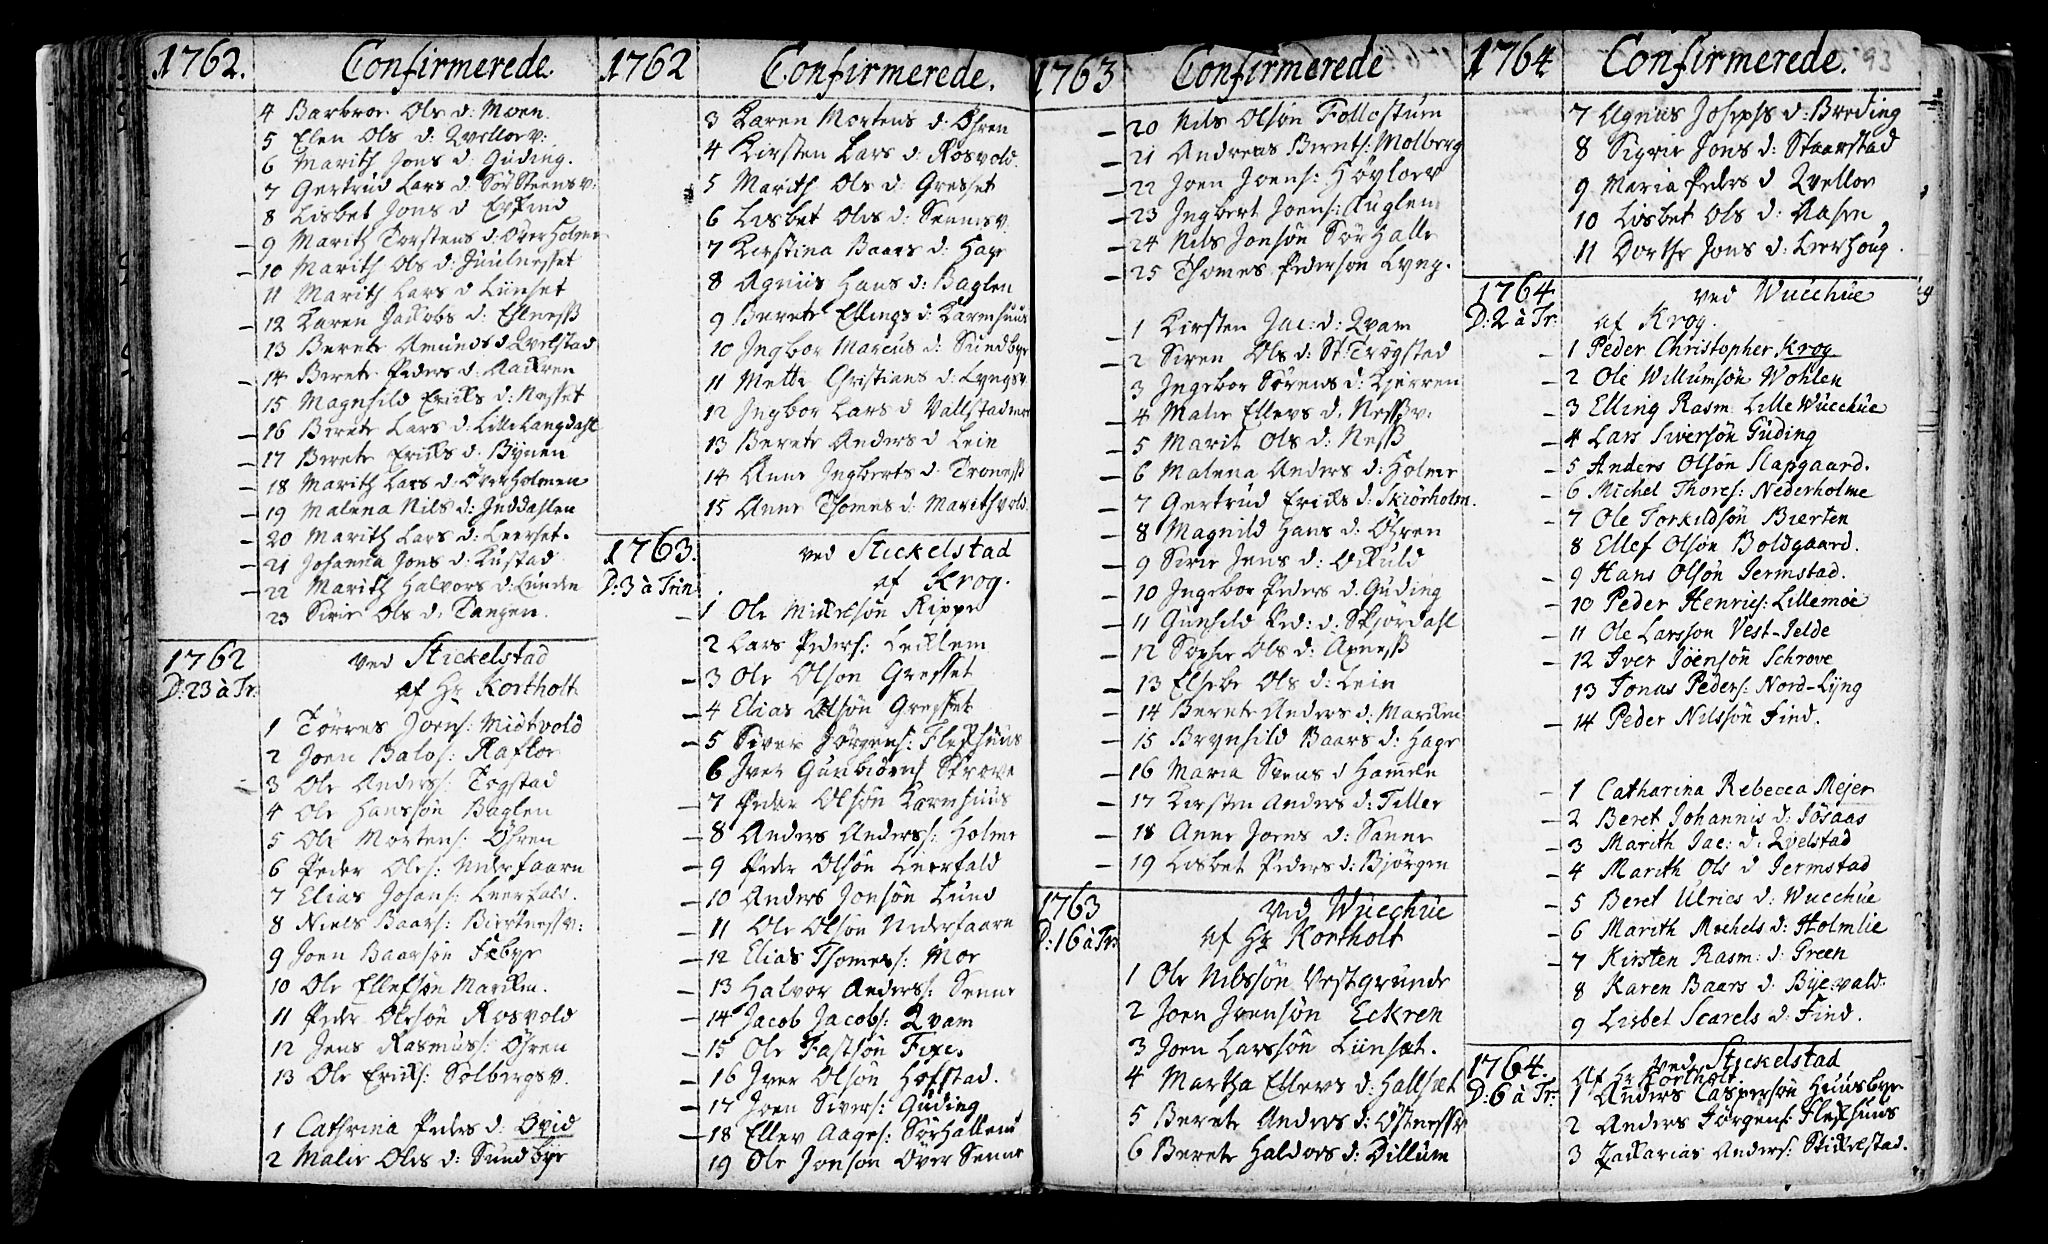 1762. Confirmerede.
4 Barbroe Ols d: Moen.
5 Elen Ols d: Qvelloev:
6 Marith Jons d: Guding.
7 Gertrud Lars d: SörSteensv:
8 Lisbet Jons d
9 Marith Torstens d: OverHolme
10 Marith Ols d: Juulnesset
11 Marith Lars d Liinset
12 Karen Jacobs d: Elneß
13 Berete Amunds d Qvelstad
14 Berete Peders d: Aakren
15 Magnhild Ericks d: Nesset
16 Berete Lars d: LilleLangdahl
17 Berete Ericks d. Bÿnen
18 Marith Lars d: ÖverHolmen
19 Malena Nils d: Inddahlen
20 Marith Lars d: Leerset.
21 Johanna Jons d: Kustad
22 Marith Halvors d: Lunden
23 Sirie Ols d: Tangen.
1762 ved Stickelstad
D: 23 à Tr: af Hr Kortholt
1 Törres Joens: Midtvold
2 Joen Balds: Raffloe
3 Ole Anders: Togstad
4 Ole Hanssön Baglen
5 Ole Mortens: Öhren
6 Peder Oles: Nederfaarn
7 Elias Johans: Leerfald.
8 Niels Baars: Biertnessv:
9 Joen Baarsön Febye
10 Ole Ellefsön Marken.
11 Peder Olesön Rosvold
12 Jens Rasmus: Öhren
13 Ole Ericks: Solbergsv.
1 Cathrina Peders d: Qvid
2 Malie Oles d: Sundbye
1762 Confirmerede.
3 Karen Mortens d: Öhren
4 Kirsten Lars d: Rosvold.
5 Marith Ols d: Gresset
6 Lisbet Oles d: Sennesv.
7 Kirstina Baars d: Hage
8 Agnus Hans d: Baglen
9 Berete Ellings d: Karmhuus
10 Ingbor Marcus d: Sundbye
11 Mette Christians d: Lyngsv.
12 Ingbor Lars d Vallstadmoe
13 Berete Anders d Lein
14 Anne Ingberts d: Troneß
15 Anne Thomes d: Marithvold
1763. ved Stickelstad
D: 3 à Trin. af Krog.
1 Ole Mickelsön Rippe
2 Lars Peders: Lecklem
3 Ole Olson Gresset
4 Elias Olsön Gresset
5 Siver Jörgens: Fleskhuus
6 Iver Gunbiörns: Skrove
7 Peder Olsön Karmhuus
8 Anders Anders: Holme
9 Peder Olsön Leerfald
10 Anders Jonsön Lund
11 Ole Olsön Nederfaarn
12 Elias Thomes: Moe
13 Halvor Anders: Senne
14 Jacob Jacobs: Qvam
15 Ole Fastsön Fixe.
16 Iver Olsön Hofstad.
17 Joen Sivers: Guding
18 Ellev Aages: SörHallem
19 Ole Jonson Over Senne
1763 Confirmerede
20 Nils Olsön Follostum
21 Andreas Bernts: Molberg
22 Joen Joens: Höyloev
23 Ingbert Joens: Kuglem
24 Nils Jonsön SörHalle
25 Thomes Pedersön Lyng.
1 Kirsten Jac: d: Qvam
2 Siren Ols d: St: Trögstad
3 Ingebor Sörens d: Kjerren
4 Malie Ellevs d: Neßv:
5 Marit Ols d: Neß
6 Malena Anders d: Holme
7 Gertrud Ericks d: Skiörholm.
8 Magnild Hans d: Öhren
9 Sirie Jens d: Økuld
10 Ingebor Peders d: Guding
11 Gunhild Ped: d: Skjördahl
12 Sophie Ols d: Axneß
13 Elsebe Ols d: Lein
14 Berete Anders d: Marken
15 Brynhild Baars d: Hage
16 Maria Svens d Hammeln
17 Kirsten Anders d: Tiller
18 Anne Joens d: Sanne
19 Lisbet Peders d: Bjòrgen
1763 ved Wucchue
D: 16 à Tr: af Hr Kortholt
1 Ole Nilssön Vestgrunde
2 Joen Joensön Eckren
3 Joen Larssön Liinset.
4 Martha Ellevs d: Hallset
5 Berete Anders d: Østnessv
6 Berete Haldors d: Dillum
1764 Confirmerede. 93
7 Agnus Josephs d: Breding
8 Sigrie Jons d: Staarstad
9 Maria Peders d Qvelloe
10 Lisbet Ols d: Aasen
11 Dorthe Jons d: Leerhoug.
1764 ved Wucchue
D: 2 à Tr: af Krog.
1 Peder Christopher Krog
2 Ole Willumsön Wohlen
3 Elling Rasm. Lille Wucchue
4 Lars Siversön Guding
5 Anders Olsön Slapgaard.
6 Michel Thores: Nederholme
7 Ole Torkildsön Bierten
8 Ellef Olsön Boldgaard.
9 Hans Olsön Jermstad.
10 Peder Henrics: Lillemoe
11 Ole Larsson Vest-Jelde
12 Iver Joensön Schrove
13 Jonas Peders: Nord-Lÿng
14 Peder Nilssön Find.
1 Catharina Rebecca Mejer
2 Beret Johannis d: Jösaas
3 Marith Jac: d: Qvelstad
4 Marith Ols d Jermstad
5 Beret Ulrics d: Wucchue
6 Marith Michels d: Holmlie
7 Kirsten Rasm: d: Green
8 Karen Baars d: Bÿevald:
9 Lisbet Scarels d: Find.
1764. ved Stickelstad
D: 6 à Tr: Af Hr Kortholt
1 Anders Caspersön Huusbye
2 Anders Jörgens: Fleskhuus
3 Zackarias Anders: Stickelstad.